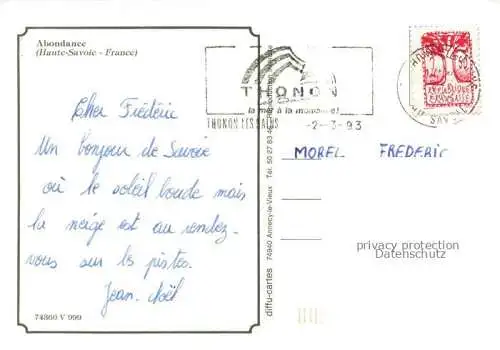 Abondance
(Haute-Savoie - France)
Cher Frédéric
Un bonjour de Savoie
où le soleil boude mais
la neige est au rendez-
vous sur les pistes.
Jean-Noël
74360 V 099
diffu-cartes 74940 Annecy-le-Vieux Tél. 50 27 83
THONON
THONON LES BAINS
-2-3-93
RÉPUBLIQUE
FRANÇAISE
MOREL FREDERIC
privacy protection
Datenschutz